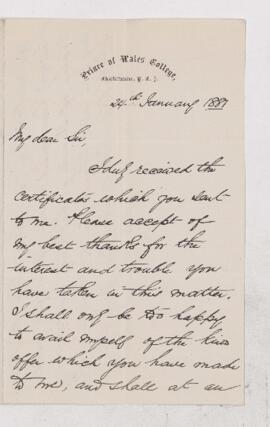 Prince of Wales College,
24th January 1887
My dear Sir,
I duly received the
certificates which you sent
to me. Please accept of
my best thanks for the
interest and trouble you
have taken in this matter.
I shall only be too happy
to avail myself of the kind
offer which you have made
to me, and shall at an